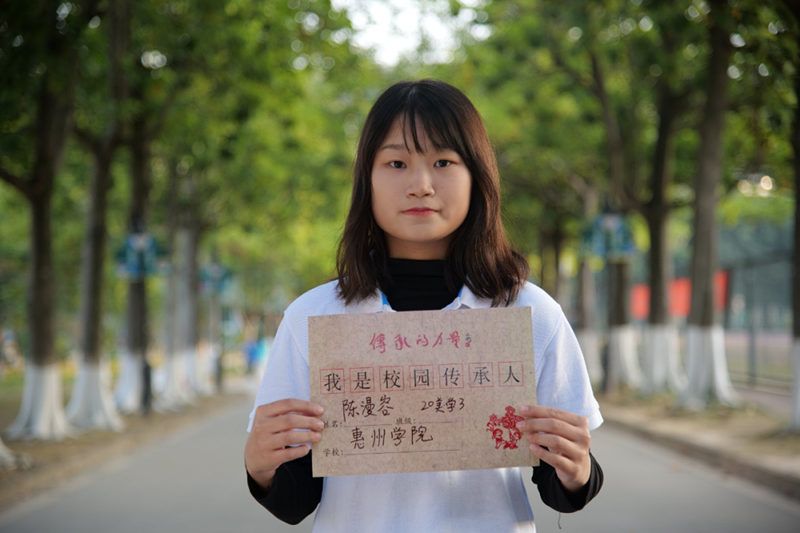 传承的力量
我是校园传承人
姓名：陈漫容 班级：20美学3
学校：惠州学院